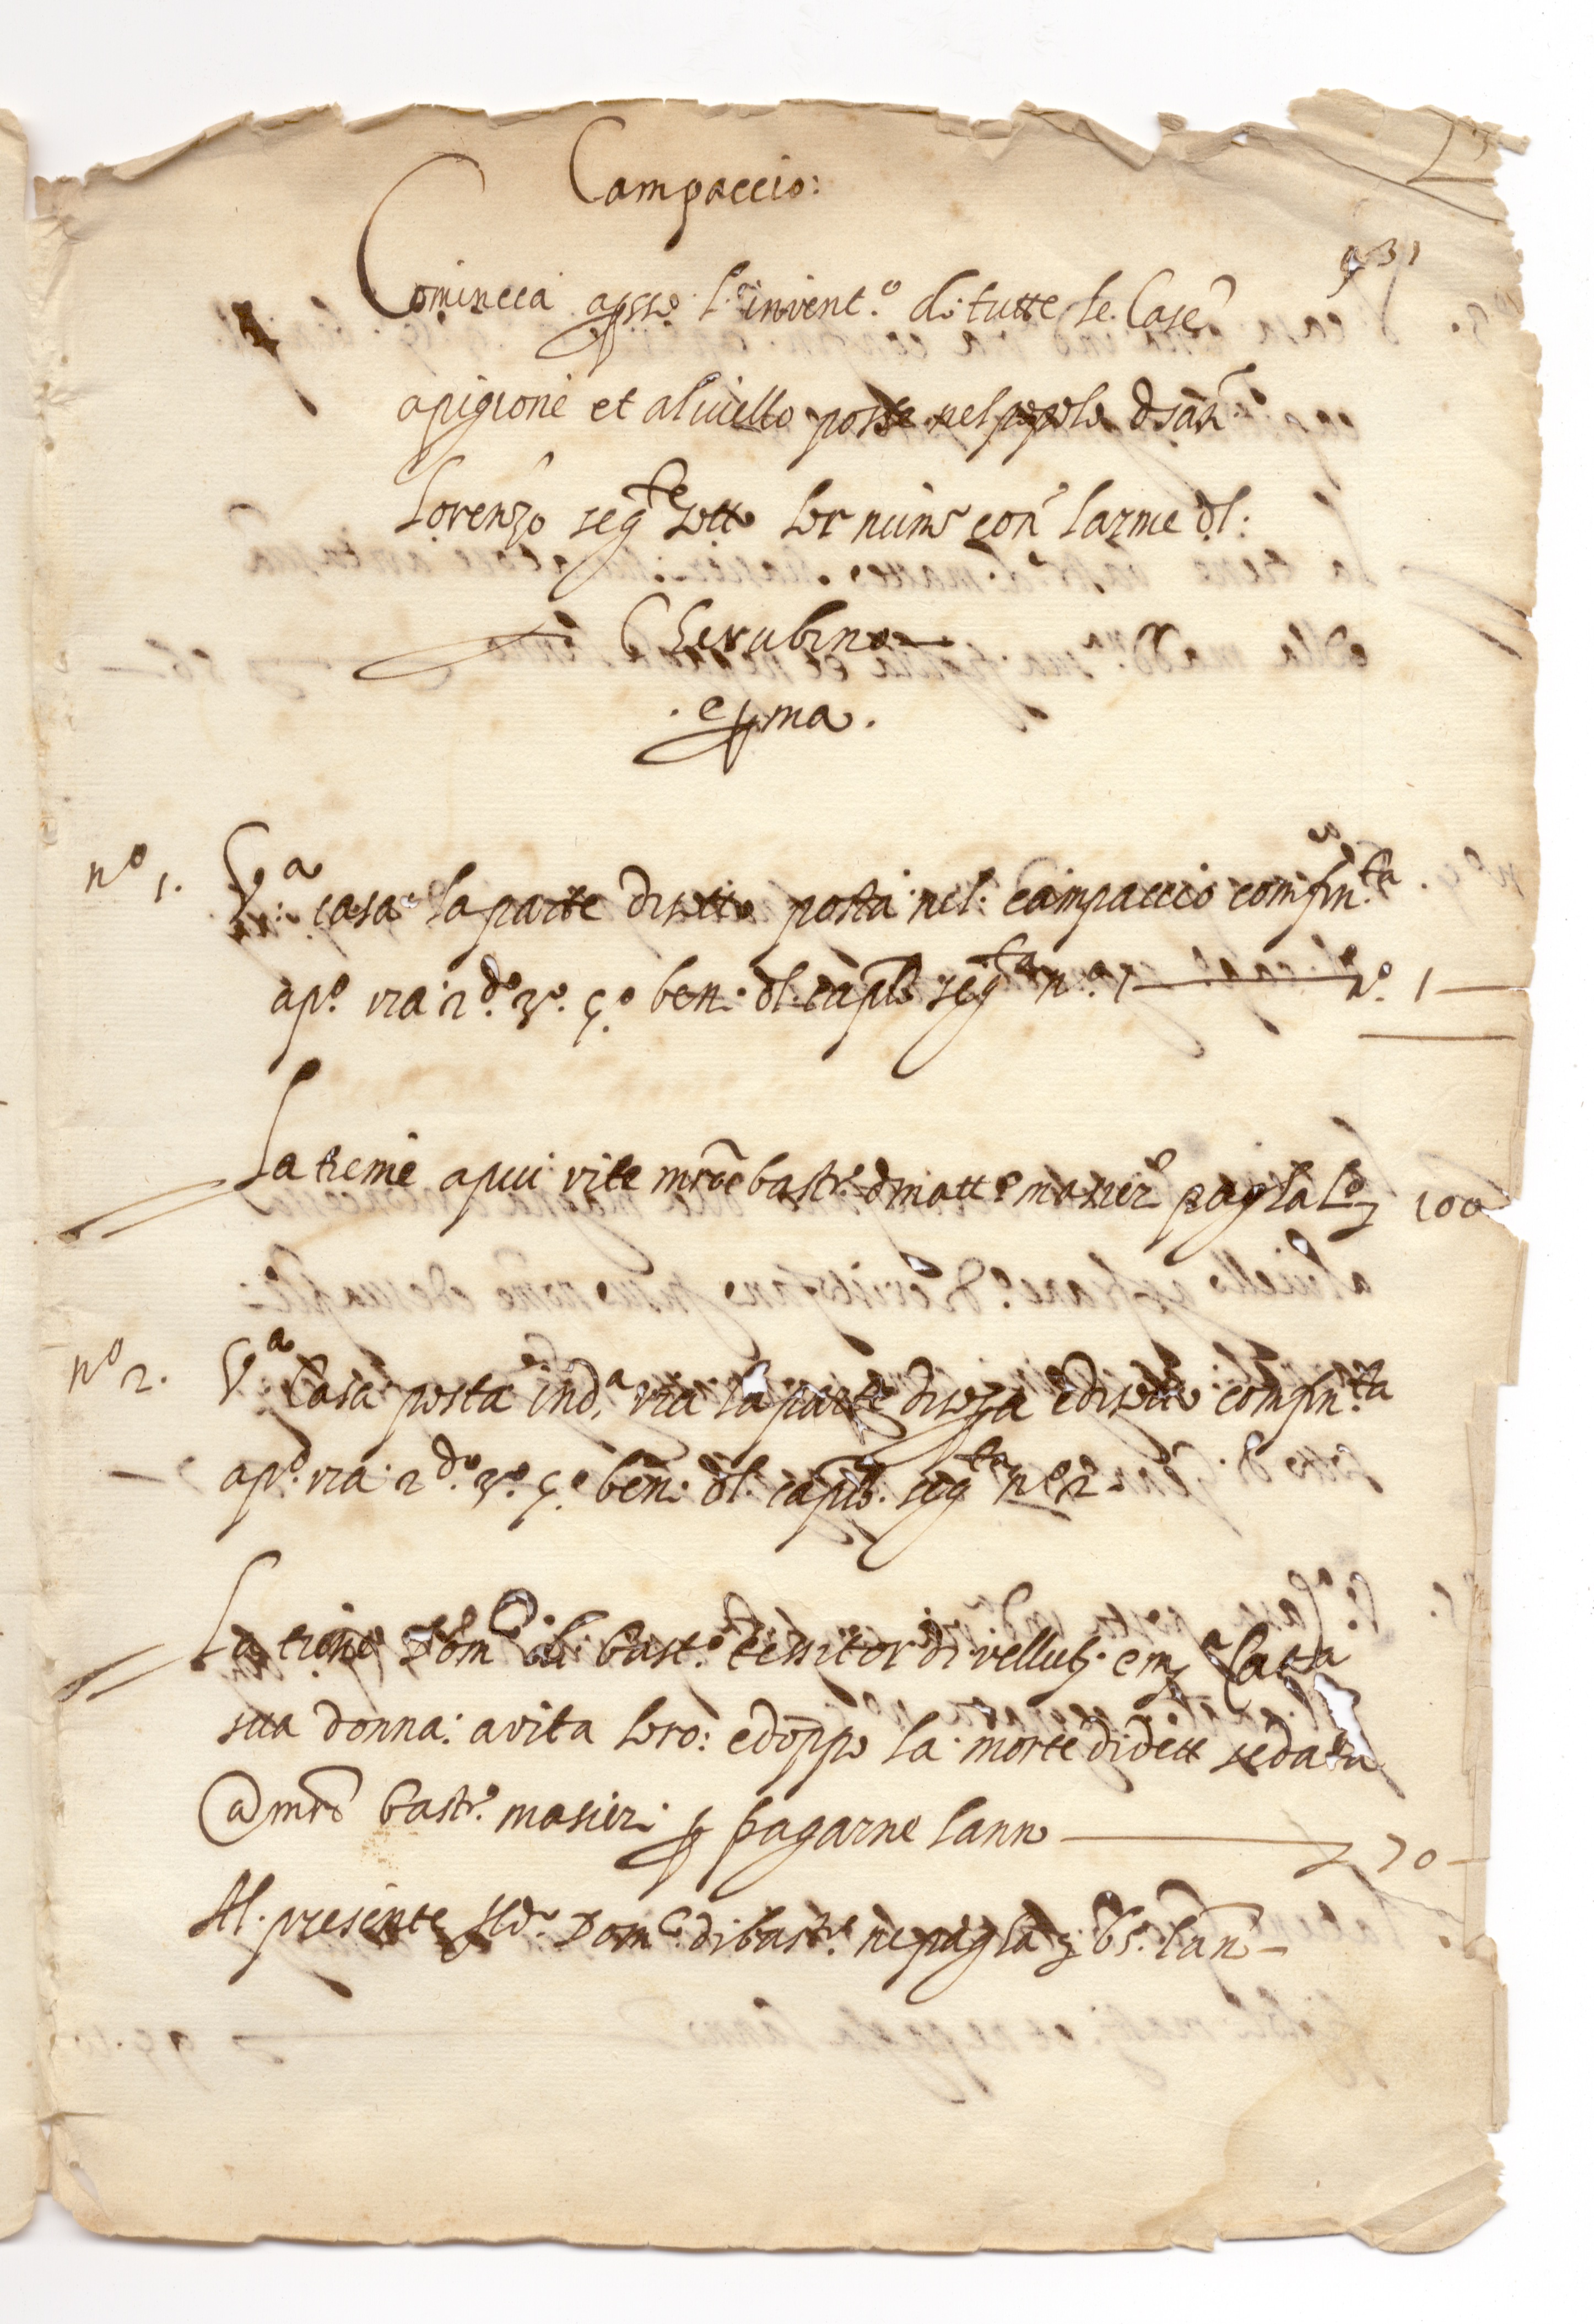 Campaccio:
Comincia apsso l'invent.o di tutte le Case
apigione et aliuello poste nel popolo d san
Lorenzo seg.te sotto lor num.o con larme dl:
Cherubino
. e p.ma .
n.o 1. V.a casa la parte disotto posta nel campaccio comfin.ta
ap.o via 2.do 3.o 4.o beni dl. capl.o seg.ta n.o 1 n.o 1
La tiene a piu vite mro bast.o d matt.o masieri pagla L'o 100
n.o 2. V.a Casa posta in d.a via la parte disopra e disotto comfin.ta
ap.o via 2.do 3.o 4.o beni dl. capl.o seg.ta n.o 2
La tiene Dom.co di bast.o tessitor di velluti e m.a
sua donna: a vita loro: e doppo la morte di dett
a mro bast.o masieri p pagarne lann.o 70
Al presente Dom.co di bast.o ne pagla 65. lan